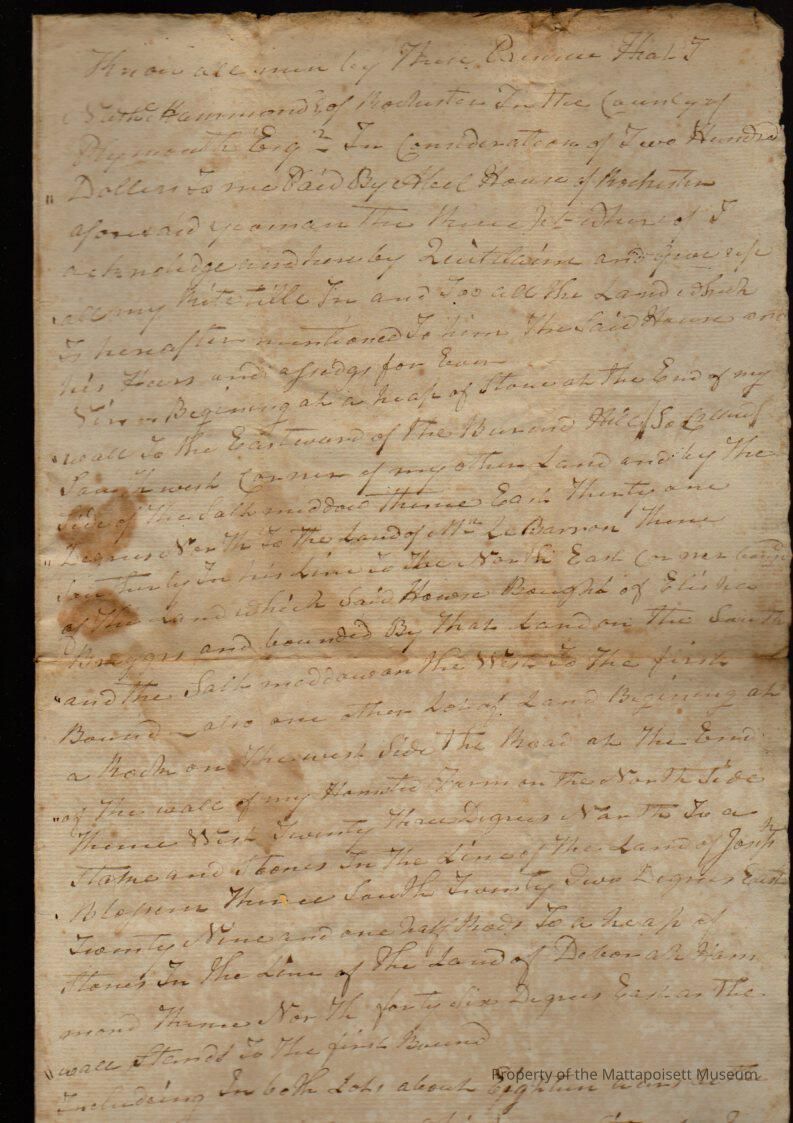 Know all men by These Presence That I
Nathl Hammond of Rochester In the County of
Plymouth Esqr In Consideration of Two Hundred
Dollers to me Paid By Abel House of Rochester
aforesaid yeoman the whereof I
acknolidge and hereby Quitclaim and give up
all my Rite till In and Too all the Land which
Is hereafter mentioned To him The Said House and
his Hears and assidgs for Ever
Begining at a heap of Stone at the End of my
wall To the Eastward of the Hill So Called
South west Corner of my other Land and by the
Side of The Salt meddow Thence East Thirty one
Degrees North To The Land of Mr LeBarron Thence
Southerly In his Line To The North East Corner
of The Land which Said House Bought of Elisha
Briggs and bounded By That Land on The South
and the Salt meddow on the West To The first
Bound also one other Lot of Land Begining at
a Rock on The west Side The Road at The End
of The wall of my Homsted Farm on The North Side
Thence West Twenty Three Degrees North To a
Stake and Stones In The Line of The Land of Josph
Thence South Twenty Two Degrees East
Twenty Nine and one half Rods To a heap of
Stones In The Line of The Land of Deborah Ham
mond Thence North forty Six Degrees East as The
wall Stands To The first Bound
Including In both Lots about Eighteen
Property of the Mattapoisett Museum